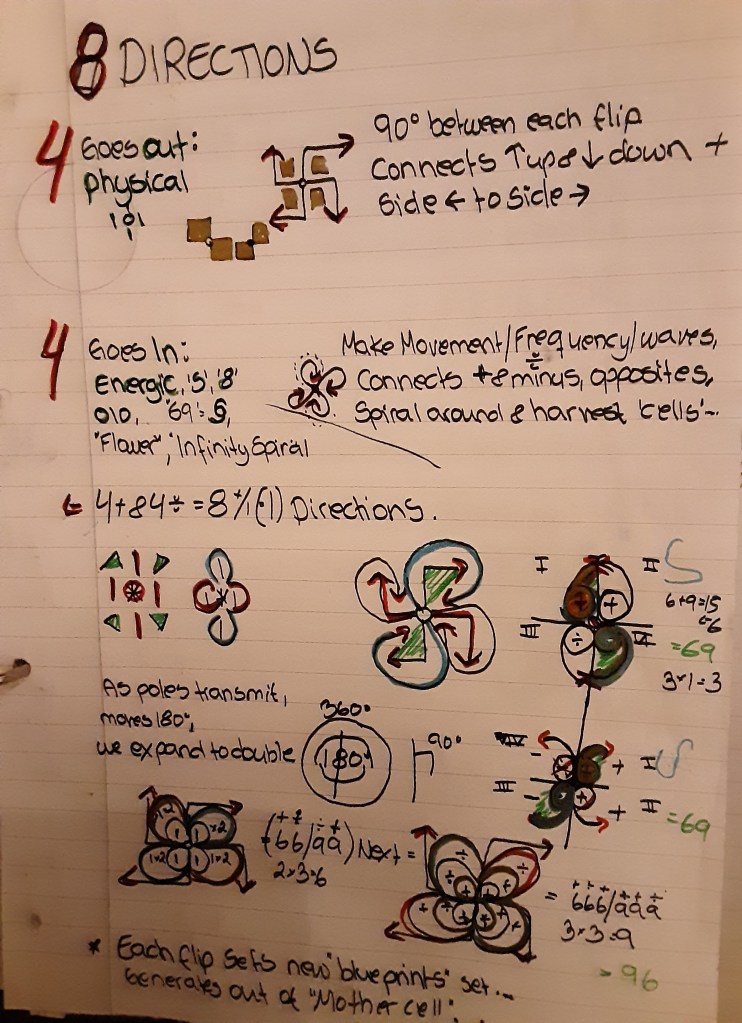 8 DIRECTIONS
4 Goes out:
physical
101
1
90° between each flip
Connects ↑up & ↓ down +
Side ← to side →
4 Goes In:
Energic, 'S', '8'
010, '69':
"Flower", 'Infinity Spiral
Make Movement/Frequency/waves,
Connects + & minus, opposites,
Spiral around & harvest 'cells'~
4+84÷ = 8 Directions.
I II S
6+9=15
=6
III
=69
3×1=3
As poles transmit,
moves 180°,
we expand to double
360°
180°
90°
I
III - + II =69
1×2 ×2
1×2 1 1 1×2
(66/99) Next =
2×3=6
= 666/999
3×3=9
= 96
* Each flip sets new "blueprints" set...
Generates out of "Mother cell"...